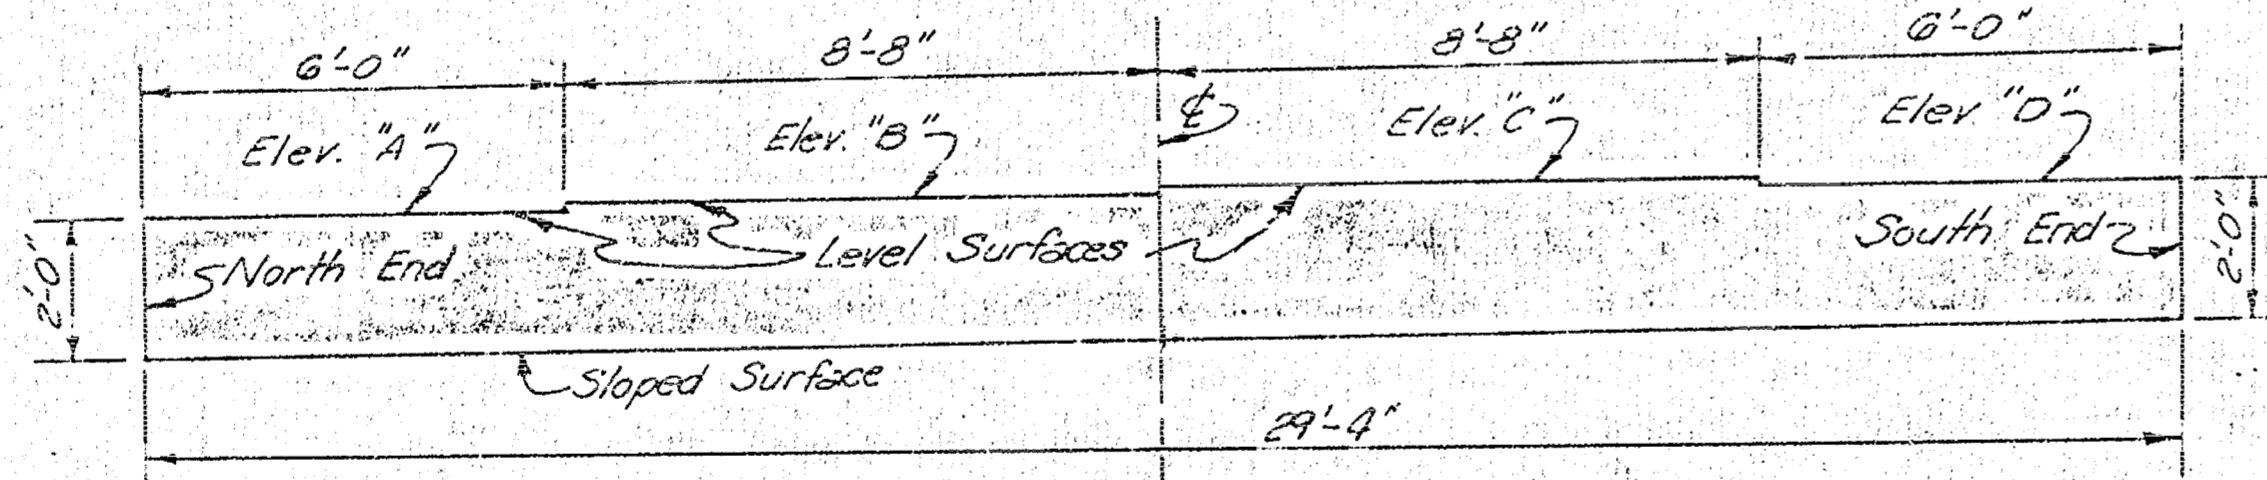 6'-0" 8'-8" 8'-8" 6'-0"
Elev. "A" Elev. "B" ℄ Elev. "C" Elev. "D"
2'-0" North End Level Surfaces South End 2'-0"
Sloped Surface
29'-4"